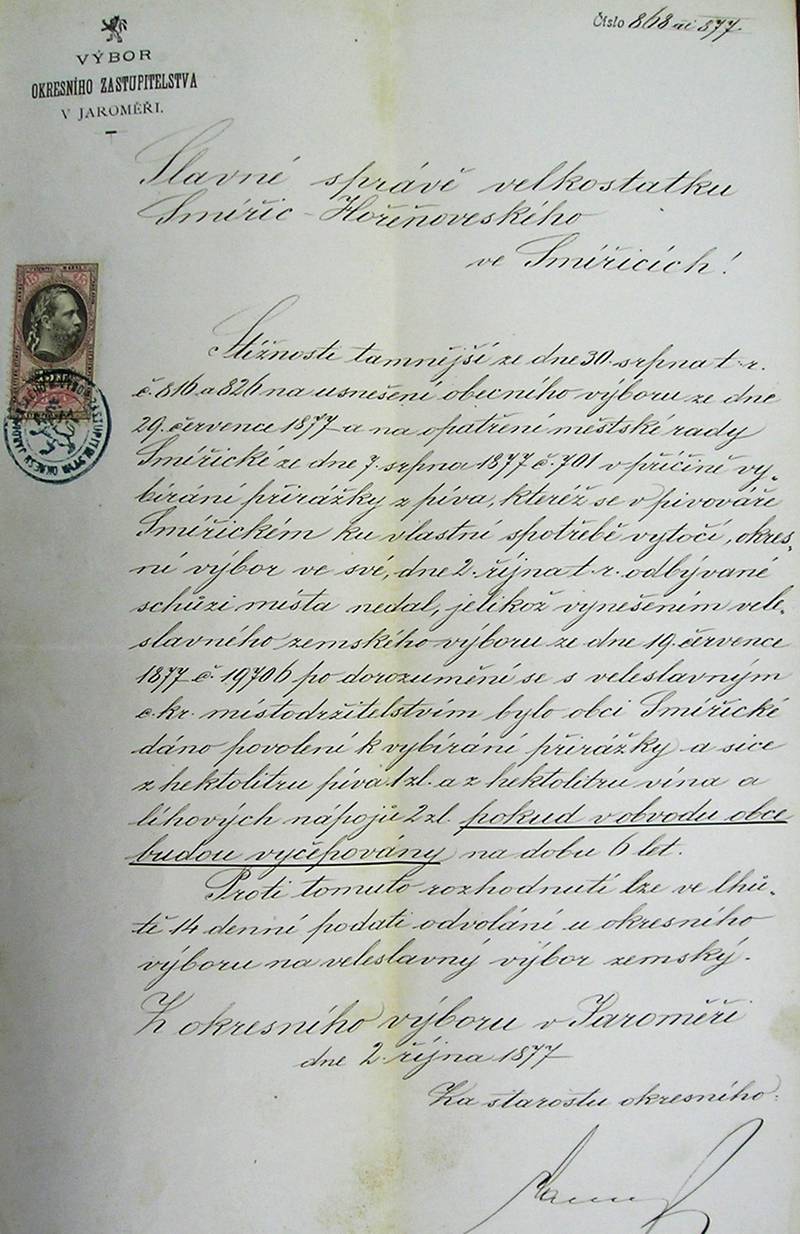 Číslo 868 ai 877.
VÝBOR
OKRESNÍHO ZASTUPITELSTVA
V JAROMĚŘI.
Slavné správě velkostatku
Smiřic-Hořiňoveského
ve Smiřicích!
Stížnosti tamnější ze dne 30. srpna t. r.
č. 816 a 826 na usnešení obecního výboru ze dne
29. července 1877 a na opatření městské rady
Smiřické ze dne 7. srpna 1877 č. 701 v příčině vy-
bírání přirážky z píva, kteréž se v pivováře
Smiřickém ku vlastní spotřebě vytočí, okres-
ní výbor ve své, dne 2. října t. r. odbývané
schůzi místa nedal, jelikož vynešením vele-
slavného zemského výboru ze dne 19. července
1877 č. 19706 po dorozumění se s veleslavným
c. kr. místodržitelstvím bylo obci Smiřické
dáno povolení k vybírání přirážky a sice
z hektolitru píva 1 zl. a z hektolitru vína a
líhových nápojů 2 zl. pokud v obvodu obce
budou vyčepovány na dobu 6 let.
Proti tomuto rozhodnutí lze ve lhů-
tě 14 denní podati odvolání u okresního
výboru na veleslavný výbor zemský.
Z okresního výboru v Jaroměři
dne 2. října 1877
Za starostu okresního: